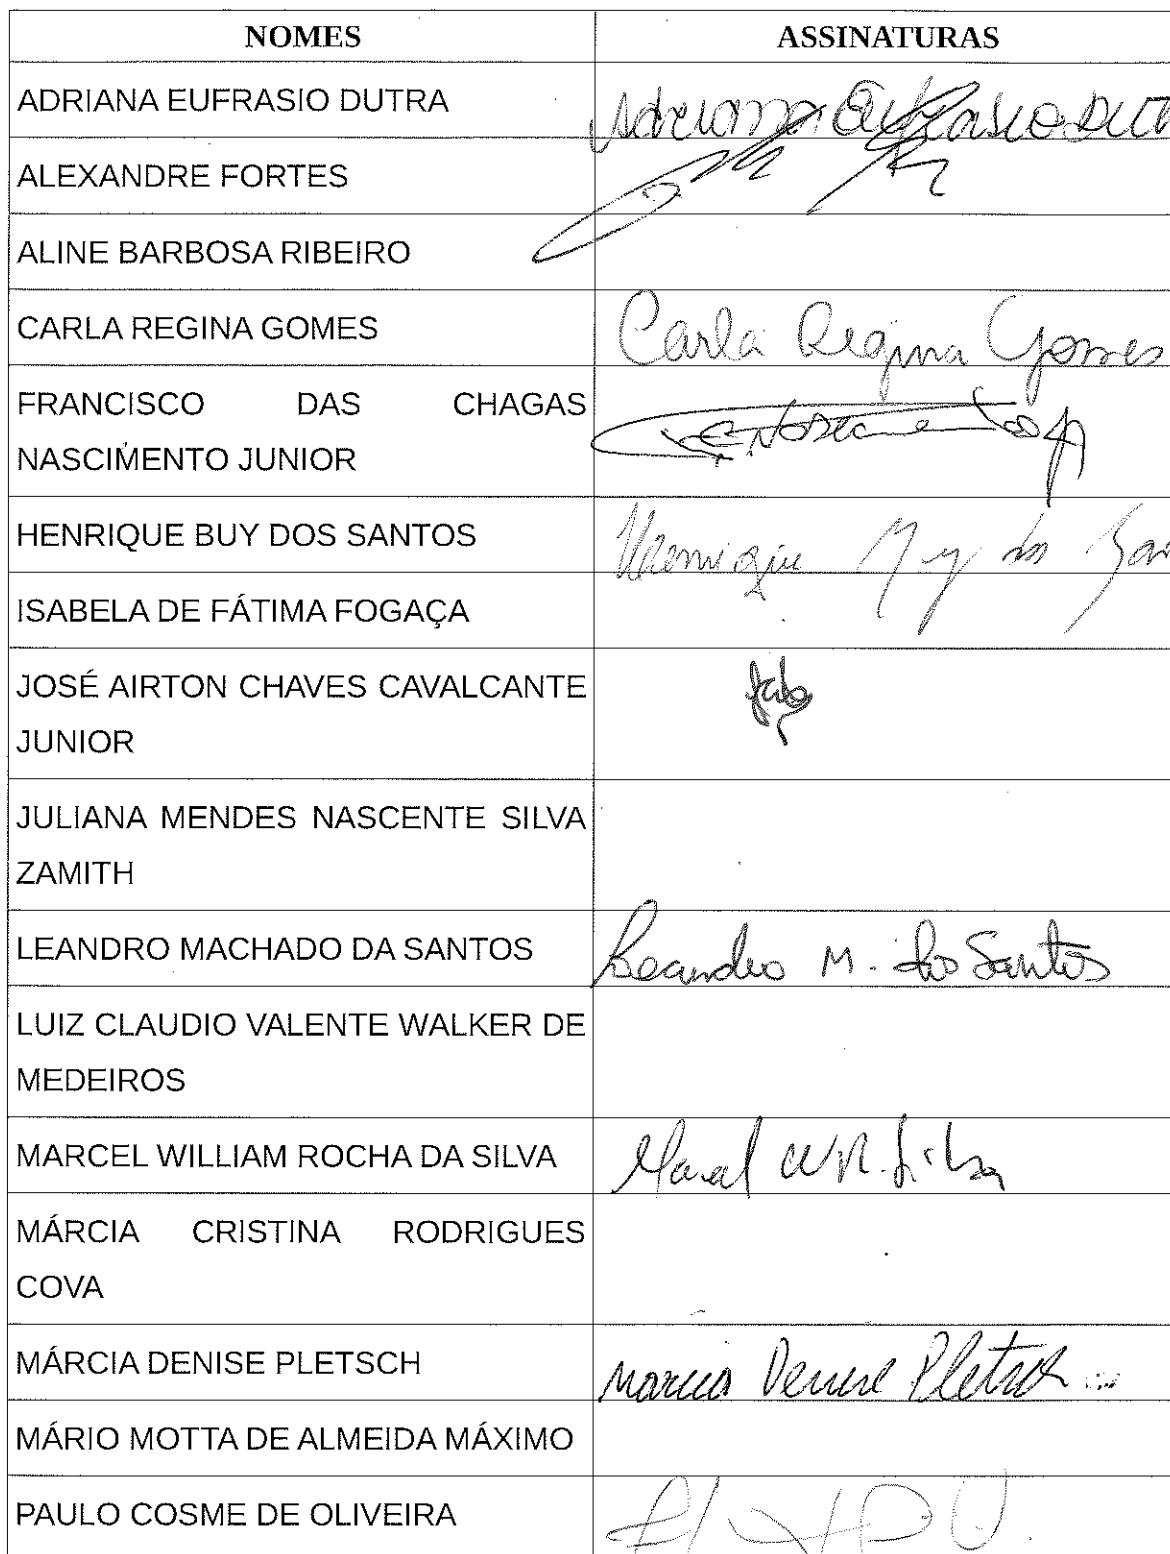 NOMES ASSINATURAS
ADRIANA EUFRASIO DUTRA Adriana Eufrasio Dut
ALEXANDRE FORTES
ALINE BARBOSA RIBEIRO
CARLA REGINA GOMES Carla Regina Gomes
FRANCISCO DAS CHAGAS
NASCIMENTO JUNIOR
HENRIQUE BUY DOS SANTOS Henrique
ISABELA DE FÁTIMA FOGAÇA
JOSÉ AIRTON CHAVES CAVALCANTE
JUNIOR
JULIANA MENDES NASCENTE SILVA
ZAMITH
LEANDRO MACHADO DA SANTOS Leandro M. dos Santos
LUIZ CLAUDIO VALENTE WALKER DE
MEDEIROS
MARCEL WILLIAM ROCHA DA SILVA Marcel W.R. Silva
MÁRCIA CRISTINA RODRIGUES
COVA
MÁRCIA DENISE PLETSCH Marcia Denise Pletsch
MÁRIO MOTTA DE ALMEIDA MÁXIMO
PAULO COSME DE OLIVEIRA